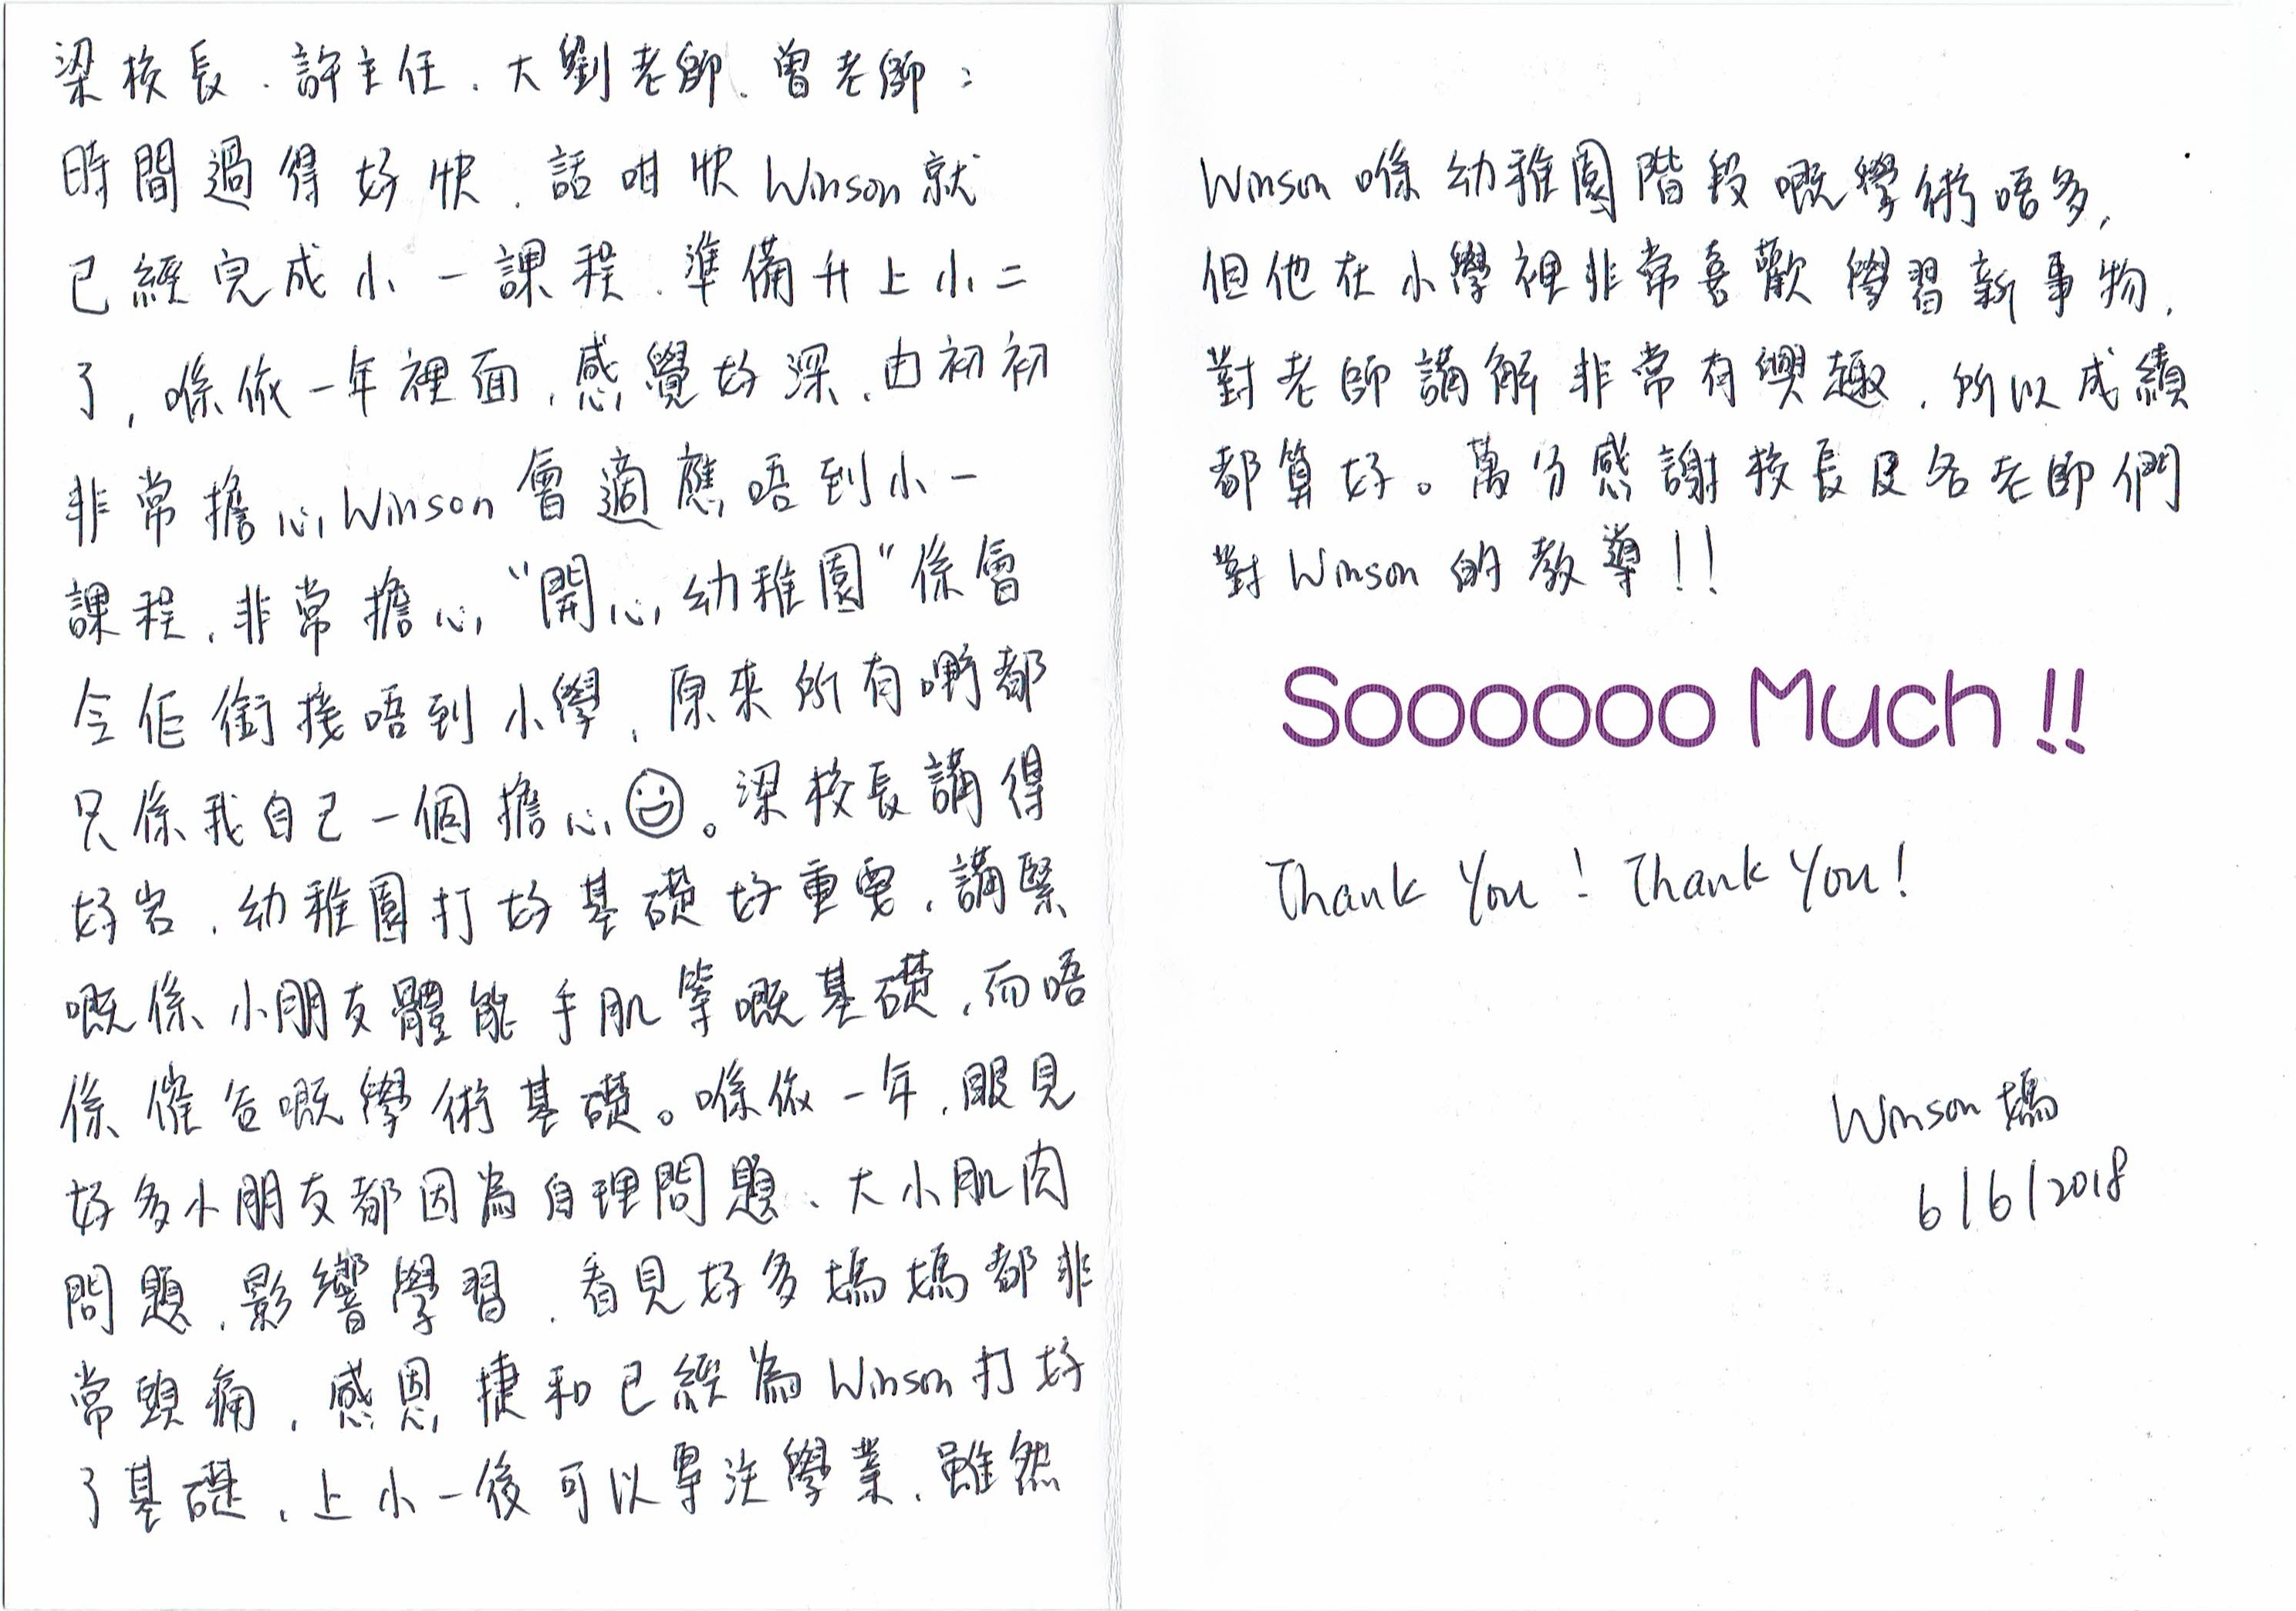 梁校長、許主任、大劉老師、曾老師：
時間過得好快，話咁快Winson就
已經完成小一課程，準備升上小二
了，喺依一年裡面，感覺好深，由初初
非常擔心Winson會適應唔到小一
課程，非常擔心"開心幼稚園"係會
令佢銜接唔到小學，原來所有嘢都
只係我自己一個擔心。梁校長講得
好岩，幼稚園打好基礎好重要，講緊
嘅係小朋友體能手肌等嘅基礎，而唔
係催谷嘅學術基礎。喺依一年，眼見
好多小朋友都因為自理問題、大小肌肉
問題，影響學習，看見好多媽媽都非
常頭痛，感恩捷和已經為Winson打好
了基礎，上小一後可以專注學業，雖然
Winson喺幼稚園階段嘅學術唔多，
但他在小學裡非常喜歡學習新事物，
對老師講解非常有興趣，所以成績
都算好。萬分感謝校長及各老師們
對Winson的教導!!
Soooooo Much !!
Thank You! Thank You!
Winson媽
6/6/2018